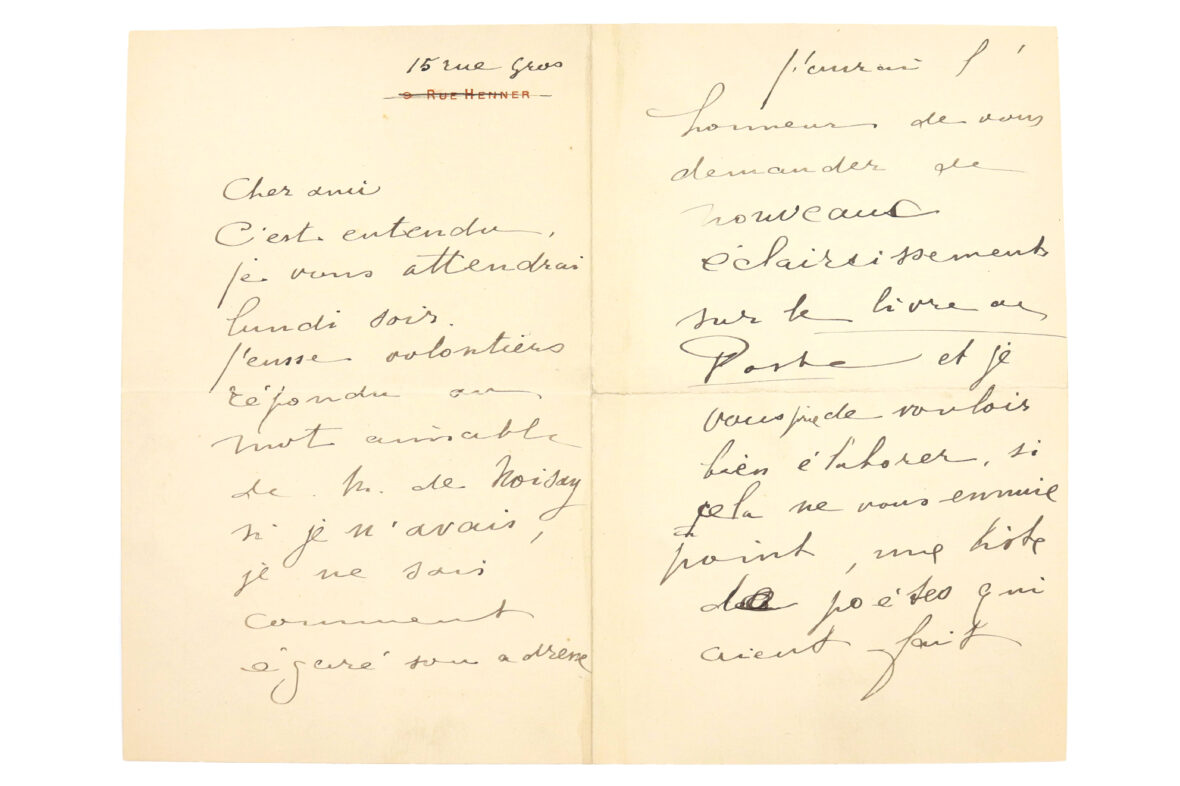 15 rue Gros
9 RUE HENNER
Cher ami
C'est entendu,
je vous attendrai
lundi soir.
J'eusse volontiers
répondu au
mot aimable
de M. de Noisay
si je n'avais,
je ne sais
comment
égaré son adresse
J'aurai l'
honneur de vous
demander de
nouveaux
éclaircissements
sur le livre de
Poste et je
vous prie de vouloir
bien élaborer, si
cela ne vous ennuie
point, une liste
de poétes qui
aient fait